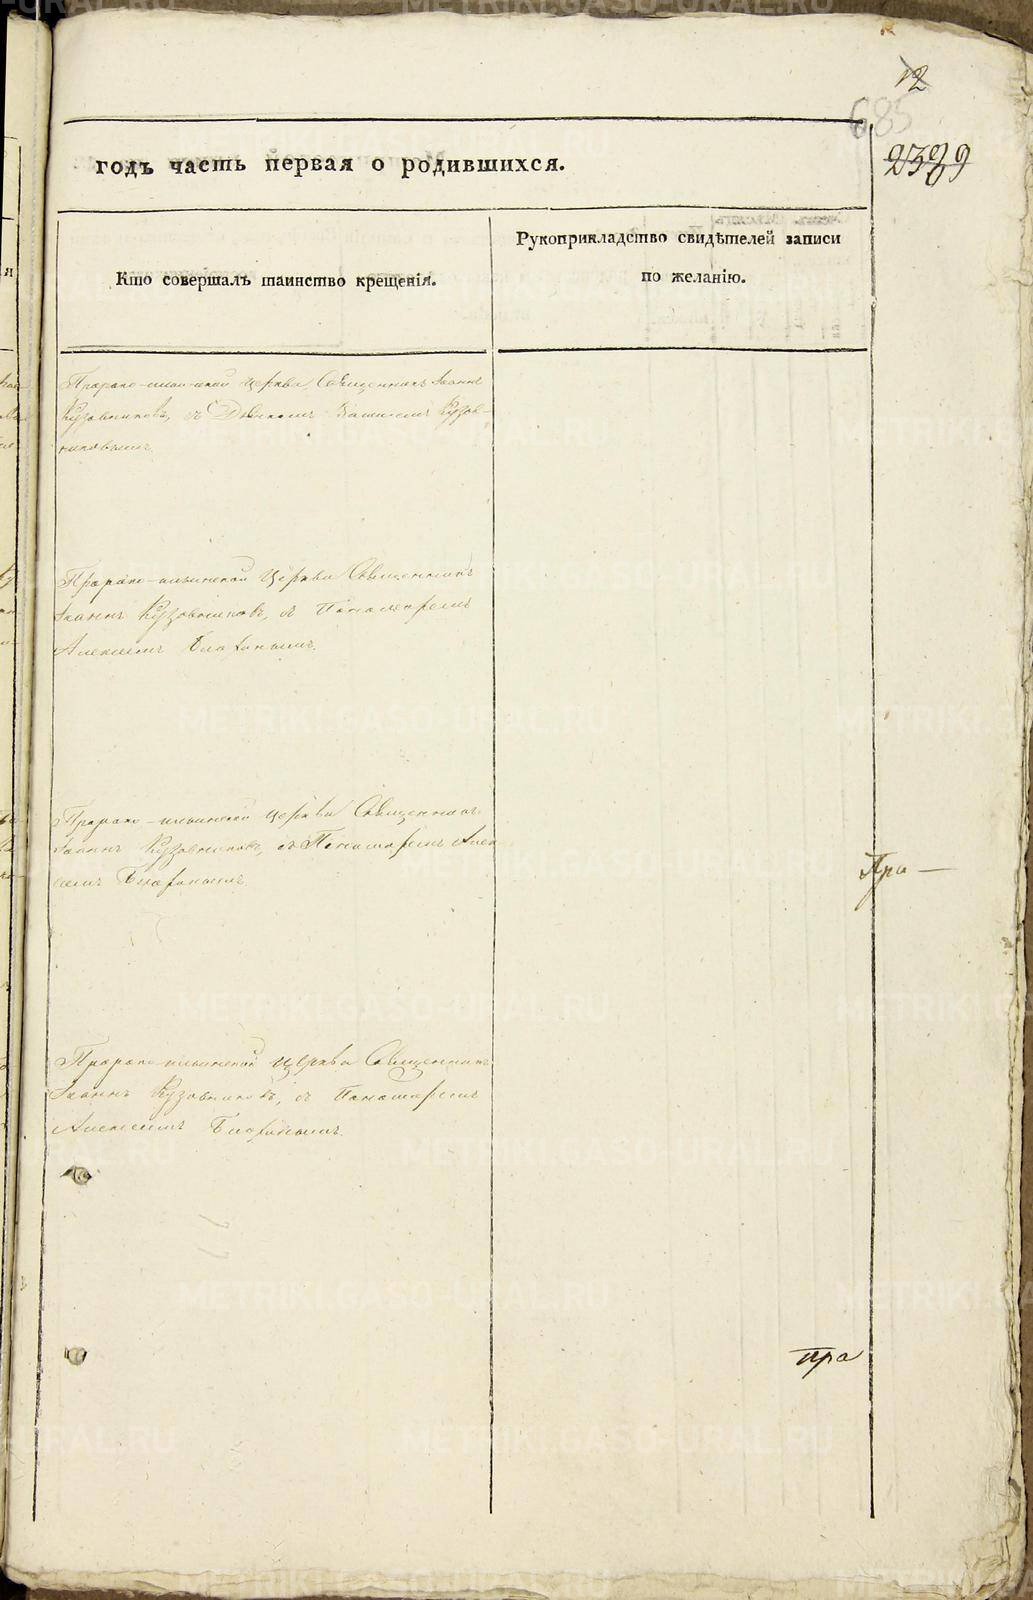 12
685
2389
годъ часть первая о родившихся.
Кто совершалъ таинство крещенія.
Рукоприкладство свидѣтелей записи
по желанію.
Пророко-ильинской церкви Священникъ Іоаннъ
Кузовниковъ, съ Дьячкомъ Кузов-
никовымъ
Пророко-ильинской Церкви Священникъ
Іоаннъ Кузовниковъ, съ Пономаремъ
Алексѣемъ
Пророко-ильинской церкви Священникъ
Іоаннъ Кузовниковъ, съ Пономаремъ Алек
сѣемъ
Пра—
Пророко-ильинской Церкви Священникъ
Іоаннъ Кузовниковъ, съ Пономаремъ
Алексѣемъ
пра
METRIKI.GASO-URAL.RU